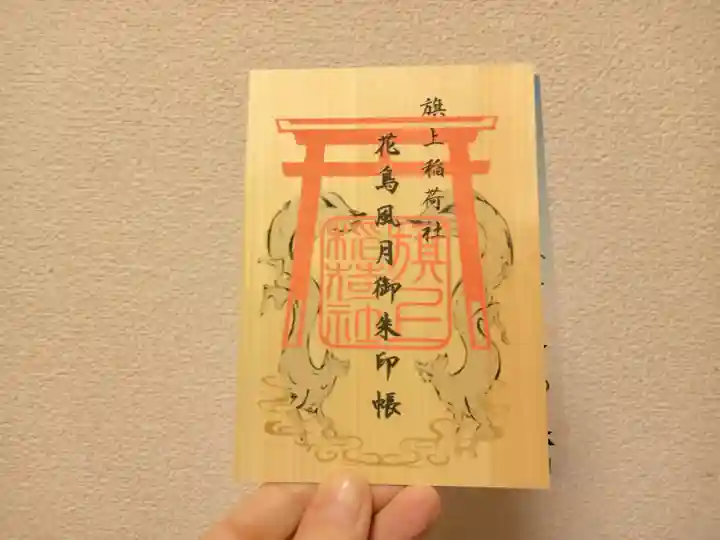 旗上稲荷社
花鳥風月御朱印帳
旗上
稲荷社